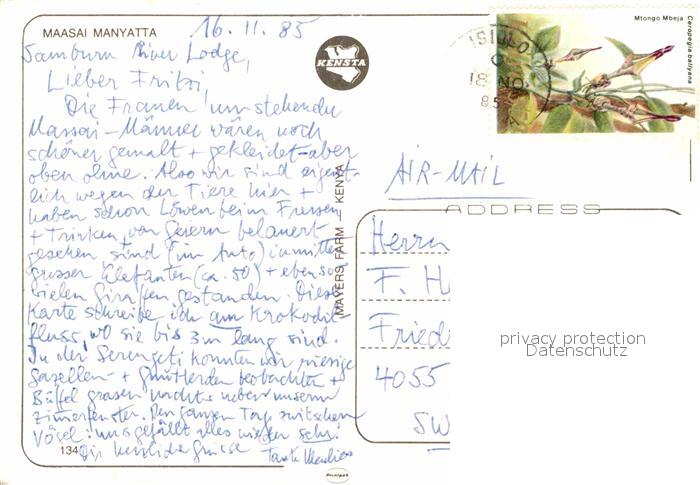 MAASAI MANYATTA
16. II. 85
Samburu River Lodge,
Lieber Fritzi,
Die Frauen umstehender
Massai-Männer wären noch
schöner gemalt + gekleidet - aber
oben ohne. Also wir sind eigent-
lich wegen der Tiere hier +
haben schon Löwen beim Fressen
+ Trinken, von Geiern belauert
gesehen, sind (im Auto) inmitten
grosser Elefanten (ca. 50) + ebenso
vielen Giraffen gestanden. Diese
Karte schreibe ich am Krokodil-
fluss, wo sie bis 3m lang sind.
In der Serengeti konnten wir riesige
Gazellen- + Gnuherden beobachten +
Büffel grasen nachts neben unserm
Zimmerfenster. Den ganzen Tag zwitschern
Vögel: uns gefällt alles wieder sehr!
Dir herzliche Grüsse Tante
134
KENSTA
MAYERS FARM - KENYA
Prinipak
Mtongo Mbeja
Ceropegia ballyana
ISIOLO
18 NO
85
AIR-MAIL
ADDRESS
Herrn
F. H
Fried
4055
SW
privacy protection
Datenschutz